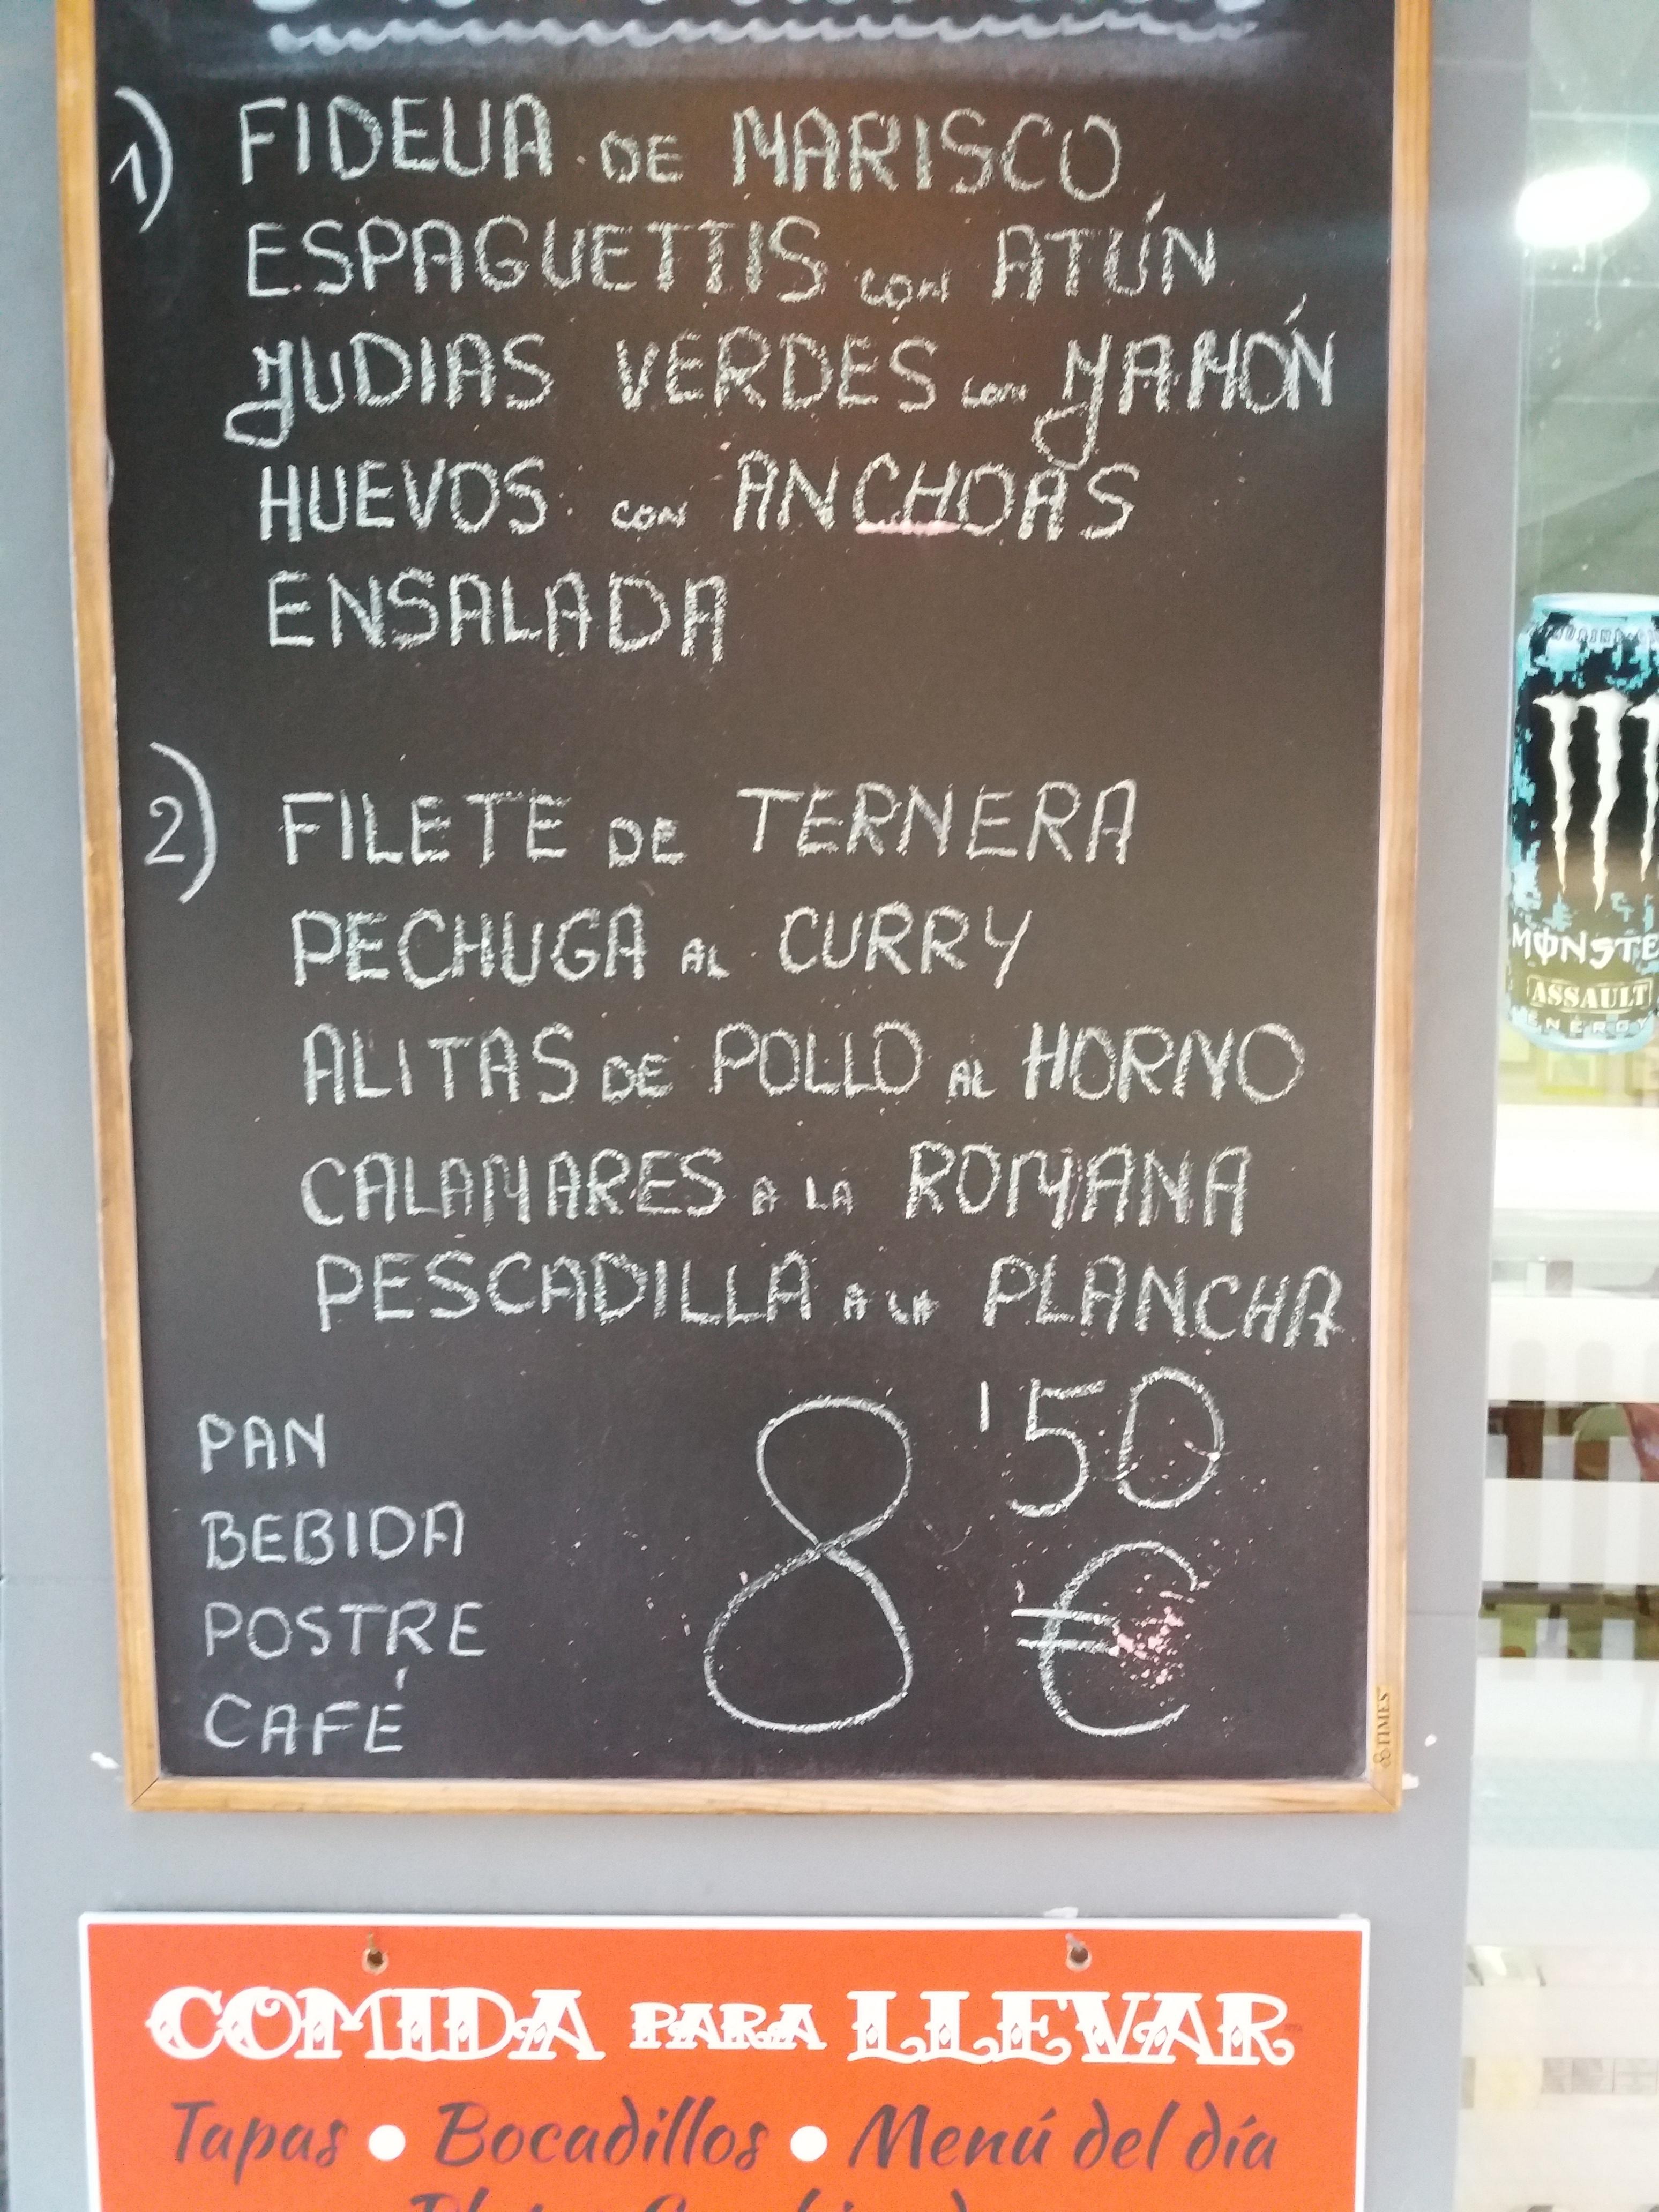 1) FIDEUA DE MARISCO
ESPAGUETTIS CON ATÚN
JUDIAS VERDES CON JAMÓN
HUEVOS CON ANCHOAS
ENSALADA
2) FILETE DE TERNERA
PECHUGA AL CURRY
ALITAS DE POLLO AL HORNO
CALAMARES A LA ROMANA
PESCADILLA A LA PLANCHA
PAN
BEBIDA
POSTRE
CAFÉ
8'50 €
TIMES
MONSTE
ASSAULT
ENERGY
COMIDA PARA LLEVAR
Tapas • Bocadillos • Menú del día